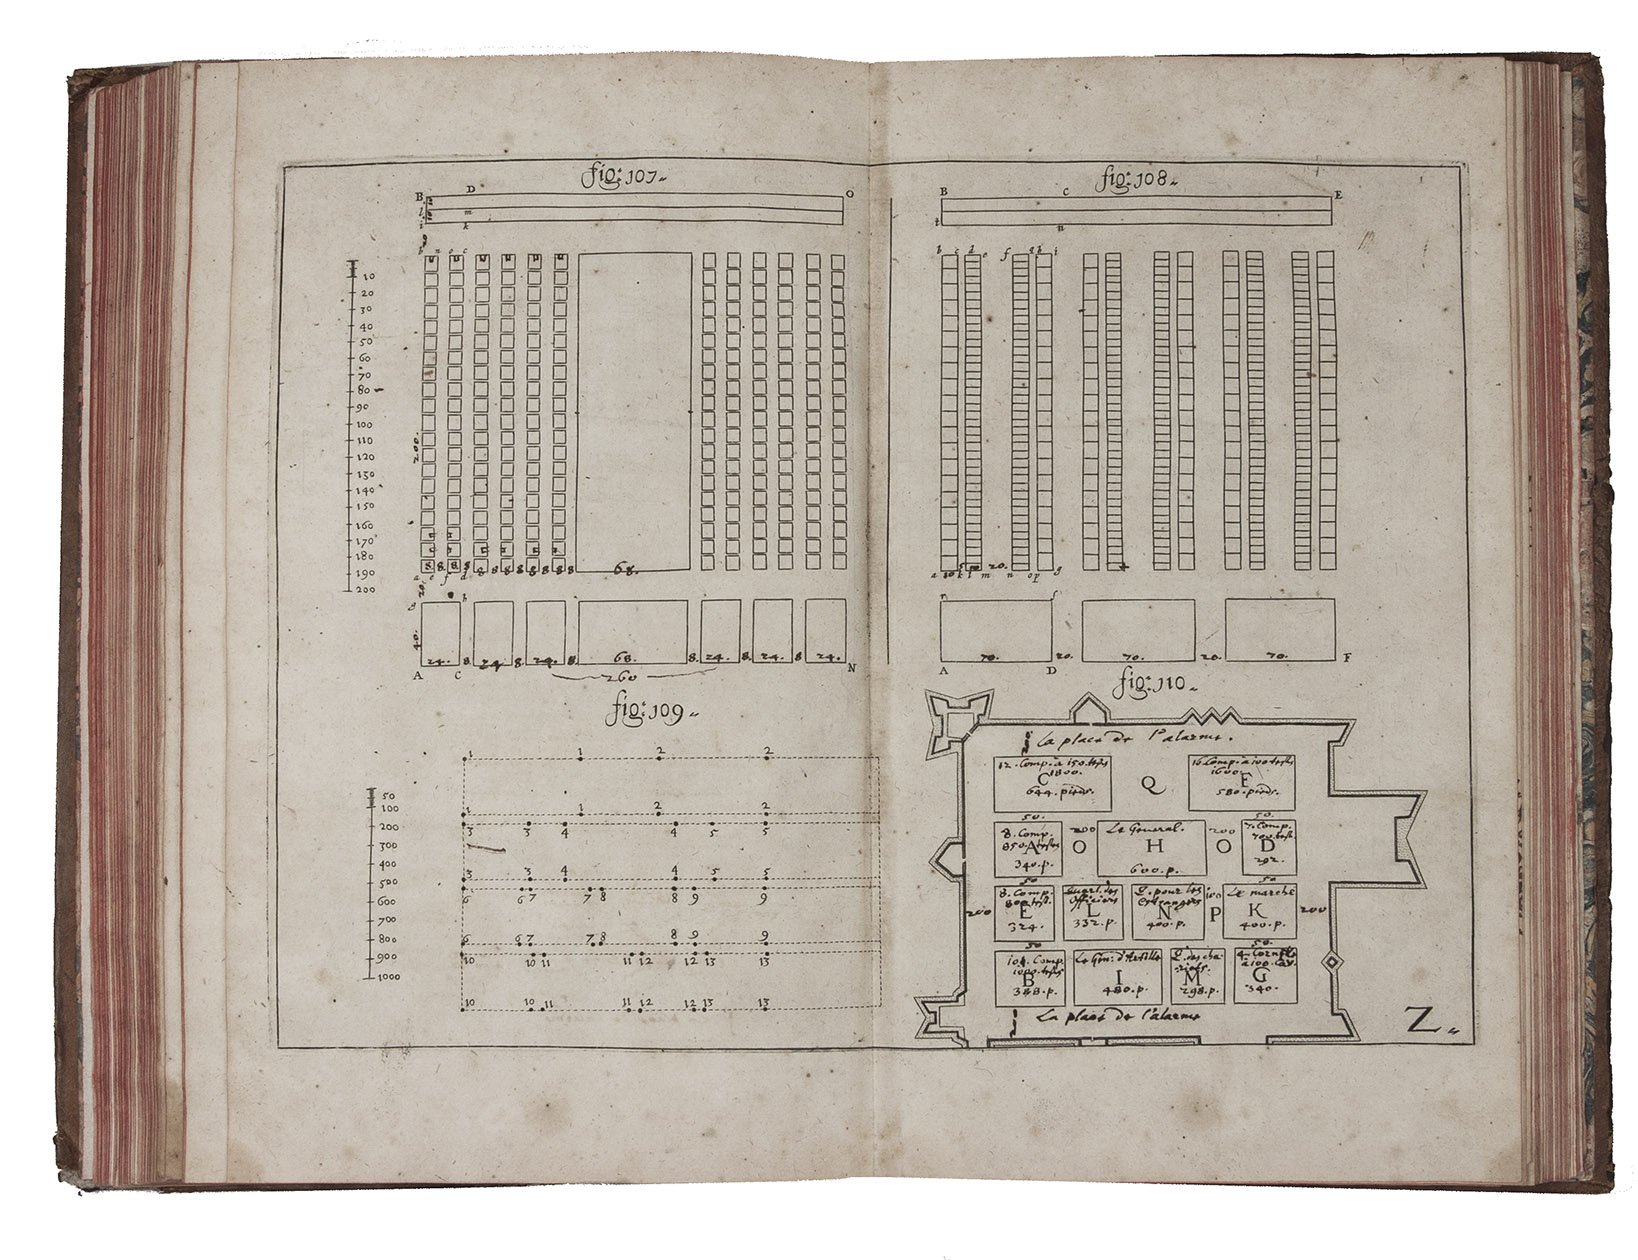 fig: 107
B D O
l m
i k
b n o c
10
20
30
40
50
60
70
80
90
100
110
120
130
140
150
160
170
180
190
200
200.
8 8. 8 8 8 8 8 8 8 8 8 8 68.
a e f d
20.
g h
40.
24. 8. 24. 8. 24. 8. 68. 8. 24. 8. 24. 8. 24.
A C N
260
fig: 108
B C E
t n
b c d e f g h i
a 10 k l m 20. n o p g
r f
70. 20. 70. 20. 70.
A D F
fig: 109
50
100
200
300
400
500
600
700
800
900
1000
1 1 2 2
1 1 2 2
3 3 4 4 5 5
3 3 4 4 5 5
6 6 7 7 8 8 9 9
6 6 7 7 8 8 9 9
10 10 11 11 12 12 13 13
10 10 11 11 12 12 13 13
fig: 110
La place de l'alarme.
12. Comp. à 150. testes
C 1800.
644. pieds.
Q
16. Comp. à 100 testes
1600. F
580. pieds.
50.
8. Comp.
850 A testes
340. p.
200
O
Le General.
H
600. p.
200
O
50.
7. Comp.
700. test.
D
292.
200
50
8. Comp.
800. test.
E
324.
Quart. des
Officiers
L
332. p.
Q. pour les
Estrangers
N
400. p.
100
P
50.
Le marché
K
400. p.
200
50
Comp.
1000. testes
B
388. p.
Le Gen. d'Artille
I
480. p.
Q. des cha
riots.
M
298. p.
50.
4. Cornets
à 100. Cav.
G
340.
La place de l'alarme
Z